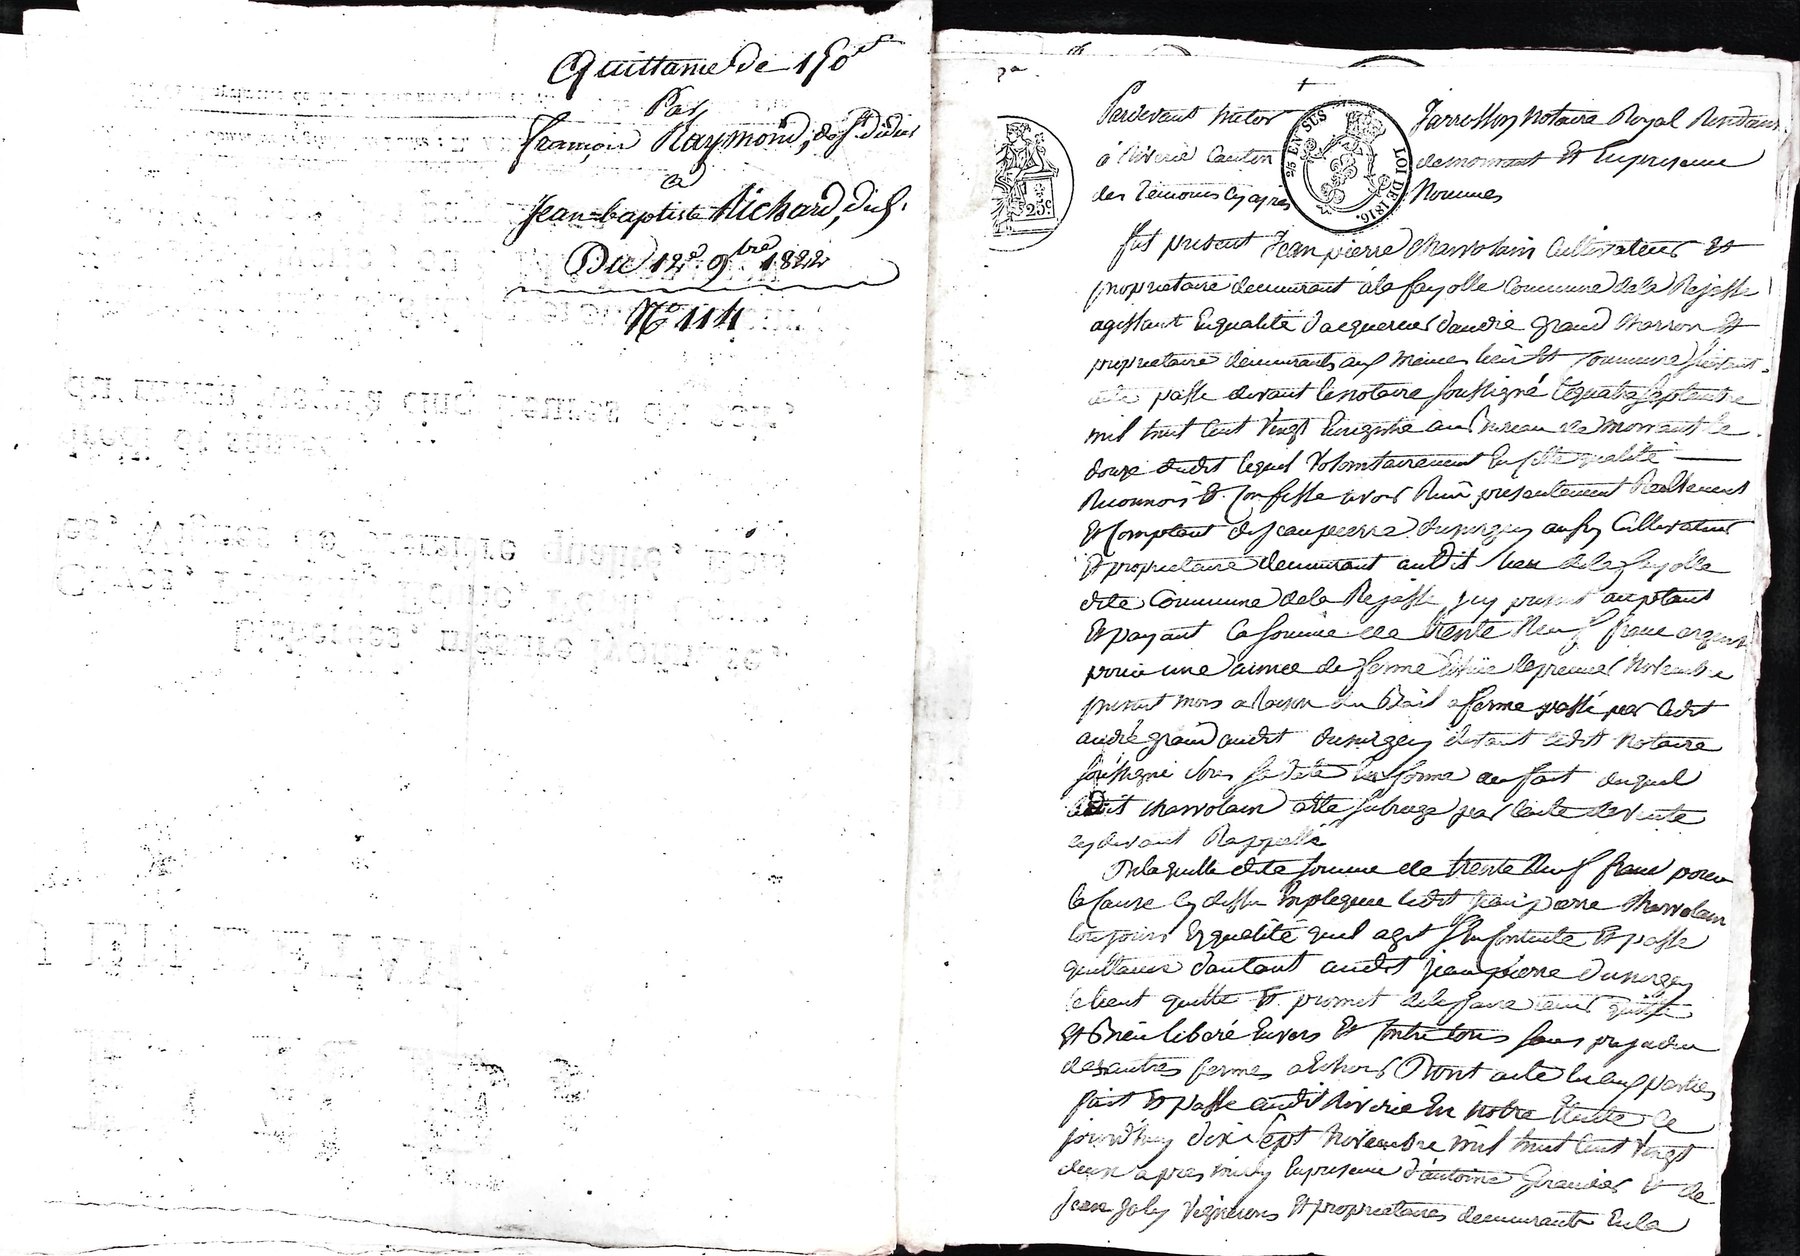 Quittance de 150
Par
françois Raymond, de St. didier
a
Jean=baptiste Richard, du
Du 12. 9bre. 1822
No. 114
Pardevant Victor Jarrosson Notaire Royal Residant
à Riverie Canton de mornant Et En presence
des temoins cy après Nommes
25 EN SUS
LOI DE 1816.
25c.
fut present Jean pierre Charvolain Cultivateur Et
proprietaire demeurant à la fayolle Commune de la Rajasse
agissant En qualité d'acquereur d'andré grand Charron Et
proprietaire demeurants aux memes lieu Et Commune suivant
acte passé devant le notaire soussigné le quatre septembre
mil huit Cent Vingt Enregistré au Bureau de mornant le
douze dudit lequel Volontairement En cette qualité
Reconnois Et Confesse avoir Reçu presentement Reellement
Et Comptant de Jean pierre Dumirgey Cultivateur
Et proprietaire demeurant audit lieu de la fayolle
dite Commune de la Rajasse icy present acceptant
Et payant la somme de trente Neuf franc argent
pour une année de ferme Echue le premier Novembre
present mois a Raison du Bail a ferme passé par ledit
andré grand audit Dumirgey devant ledit Notaire
soussigné sous sa date En forme au fait duquel
ledit Charvolain a Eté subrogé par l'acte de Vente
cy devant Rappellé
De laquelle dite somme de trente Neuf franc pour
la Cause cy dessus Expliquée ledit Jean pierre Charvolain
toujours En qualité quil agit se Contente Et passe
quittance d'autant audit Jean pierre Dumirgey
le tient quitte Et promet de le faire tenir quitte
Et Bien liberé Envers Et Contre tous sans prejudice
des autres fermes a Echoir Dont acte les parties
fait Et passé audit Riverie En notre Etude Ce
jourd'huy dix sept Novembre mil huit Cent Vingt
deux après midy En presence d'antoine Giraudier Et de
Jean Joly Vignerons Et proprietaires demeurants En la